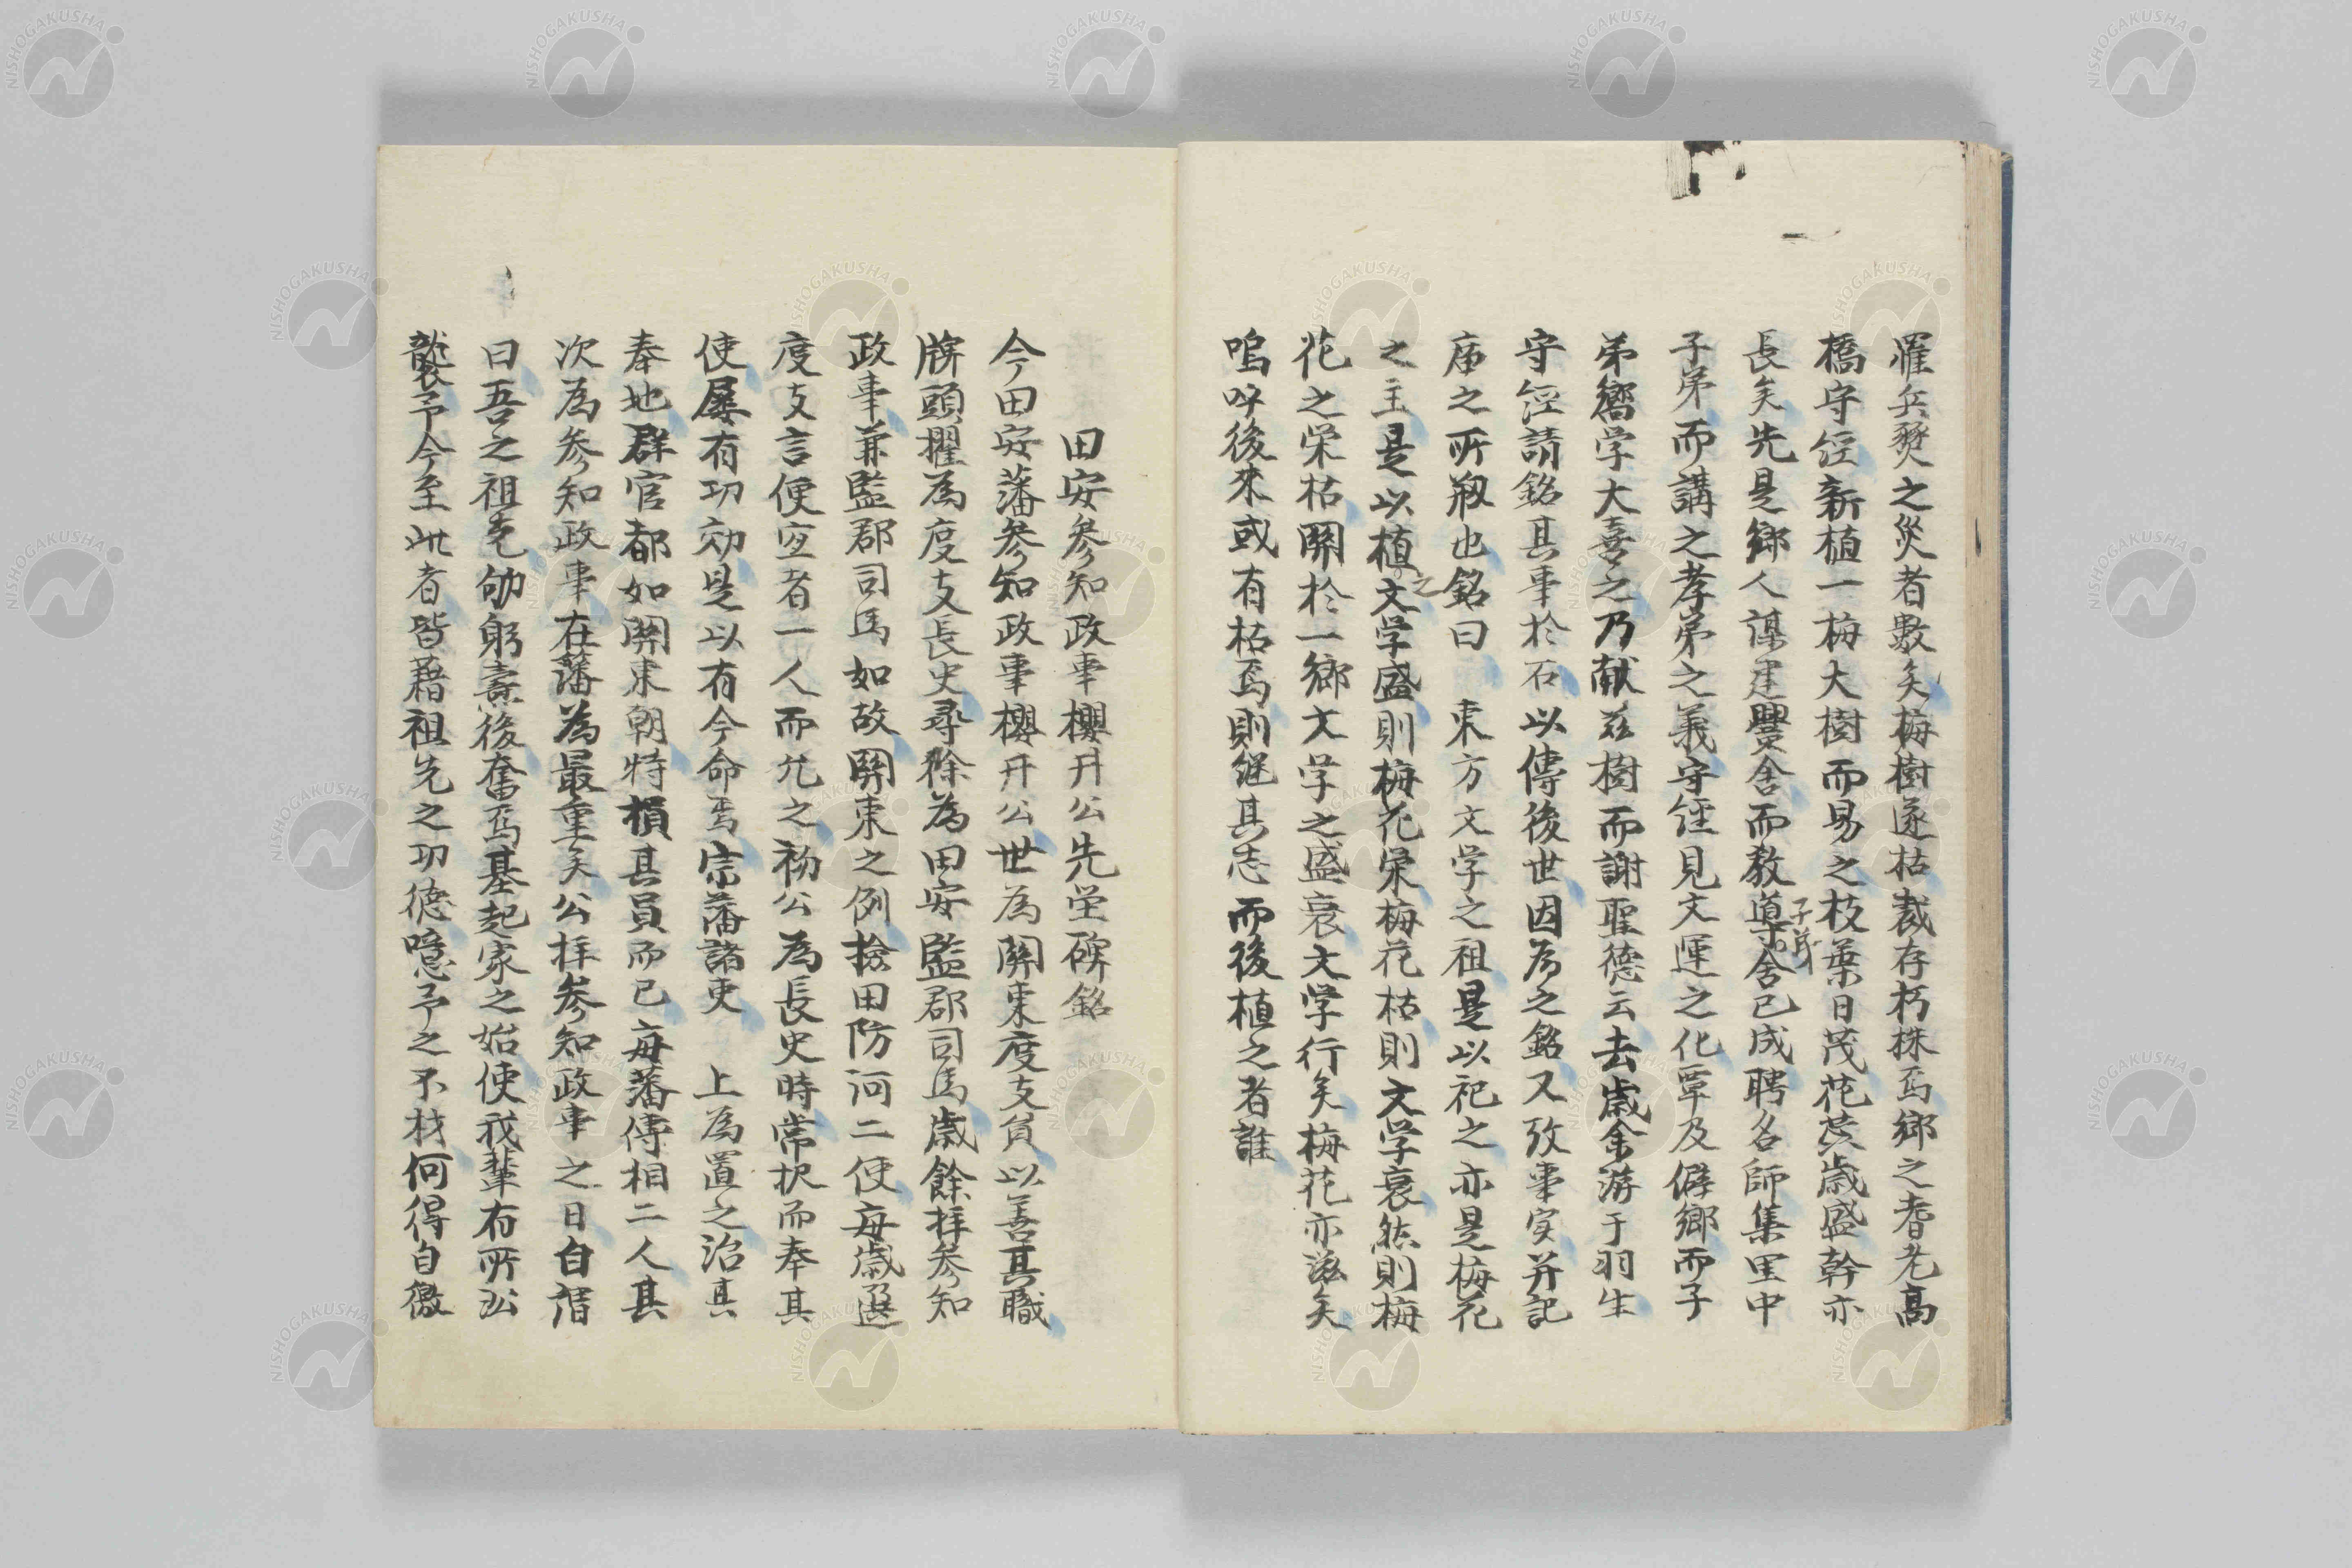 罹兵燹之災者數矣梅樹遂枯裁存朽株焉鄉之耆老高
橋守經新植一梅大樹而易之枝葉日茂花英歲盛幹亦
長矣先是鄉人謀建黌舍而教導子弟舍已成聘名師集里中
子弟而講之孝弟之義守經見文運之化覃及僻鄉而子
弟嚮学大喜之乃献茲樹而謝聖德云去歲余游于羽生
守經請銘其事於石以傳後世因為之銘又攷事实并記
庙之所剏也銘曰 東方文学之祖是以祀之亦是梅花
之主是以植之文学盛則梅花栄梅花枯則文学衰然則梅
花之栄枯關於一鄉文学之盛衰文学行矣梅花亦滋矣
嗚呼後來或有枯焉則継其志而後植之者誰
田安参知政事櫻井公先塋碑銘
今田安藩参知政事櫻井公世為關東度支負以善其職
牌頭擢為度支長史尋除為田安監郡司馬歲餘拝参知
政事兼監郡司馬如故關東之例撿田防河二使每歲選
度支言便宜者一人而允之初公為長史時常択而奉其
使屢有功効是以有今命焉宗藩諸吏 上為置之治其
奉地群官都如關東朝特損其員而已每藩傅相二人其
次為参知政事在藩為最重矣公拝参知政事之日自谓
曰吾之祖先劬躬燾後奮焉基起家之始使我輩有所沿
襲予今至此者皆藉祖先之功德噫予之不材何得自徼